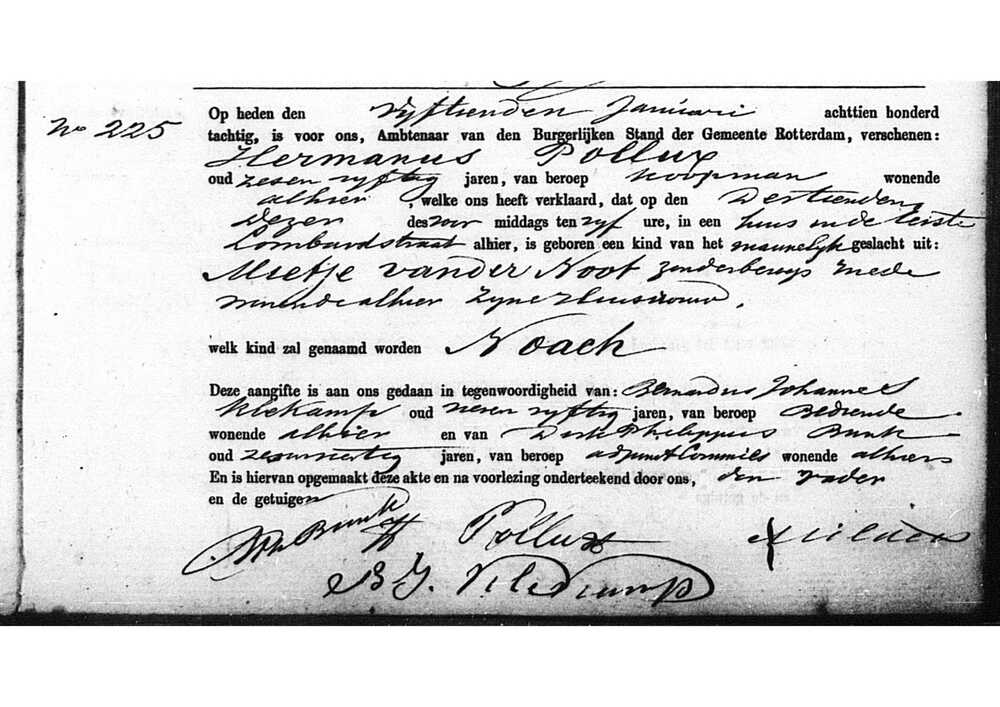 No 225
Op heden den vijftienden Januari achttien honderd
tachtig, is voor ons, Ambtenaar van den Burgerlijken Stand der Gemeente Rotterdam, verschenen:
Hermanus Pollux
oud zesen vyftig jaren, van beroep koopman wonende
alhier, welke ons heeft verklaard, dat op den Dertienden
dezer des voor middags ten vyf ure, in een huis in de
Lombardstraat alhier, is geboren een kind van het mannelyk geslacht uit:
Mietje van der Noot zonder beroep mede
wonende alhier zyne Huisvrouw.
welk kind zal genaamd worden Noach
Deze aangifte is aan ons gedaan in tegenwoordigheid van: Bernardus Johannes
oud zeven vyftig jaren, van beroep Bediende
wonende alhier en van Dirk Philippus Bunk
oud zesenveertig jaren, van beroep adjunct Commies wonende alhier
En is hiervan opgemaakt deze akte en na voorlezing onderteekend door ons, den vader
en de getuigen
Bunk H Pollux
B J.